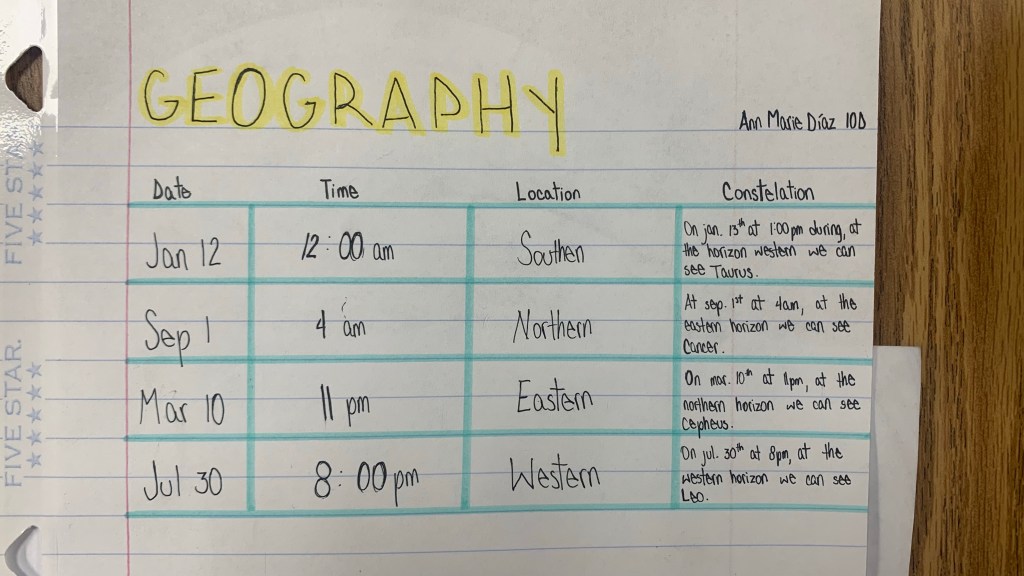 GEOGRAPHY
Ann Marie Díaz 10D
Date Time Location Constelation
Jan 12 12:00 am Southen On jan. 13th at 1:00pm during, at
the horizon western we can
see Taurus.
Sep 1 4 am Northern At sep. 1st at 4am, at the
eastern horizon we can see
Cancer.
Mar 10 11 pm Eastern On mar. 10th at 11pm, at the
northern horizon we can see
Cepheus.
Jul 30 8:00pm Western On jul. 30th at 8pm, at the
western horizon we can see
Leo.
FIVE STAR
FIVE STAR.